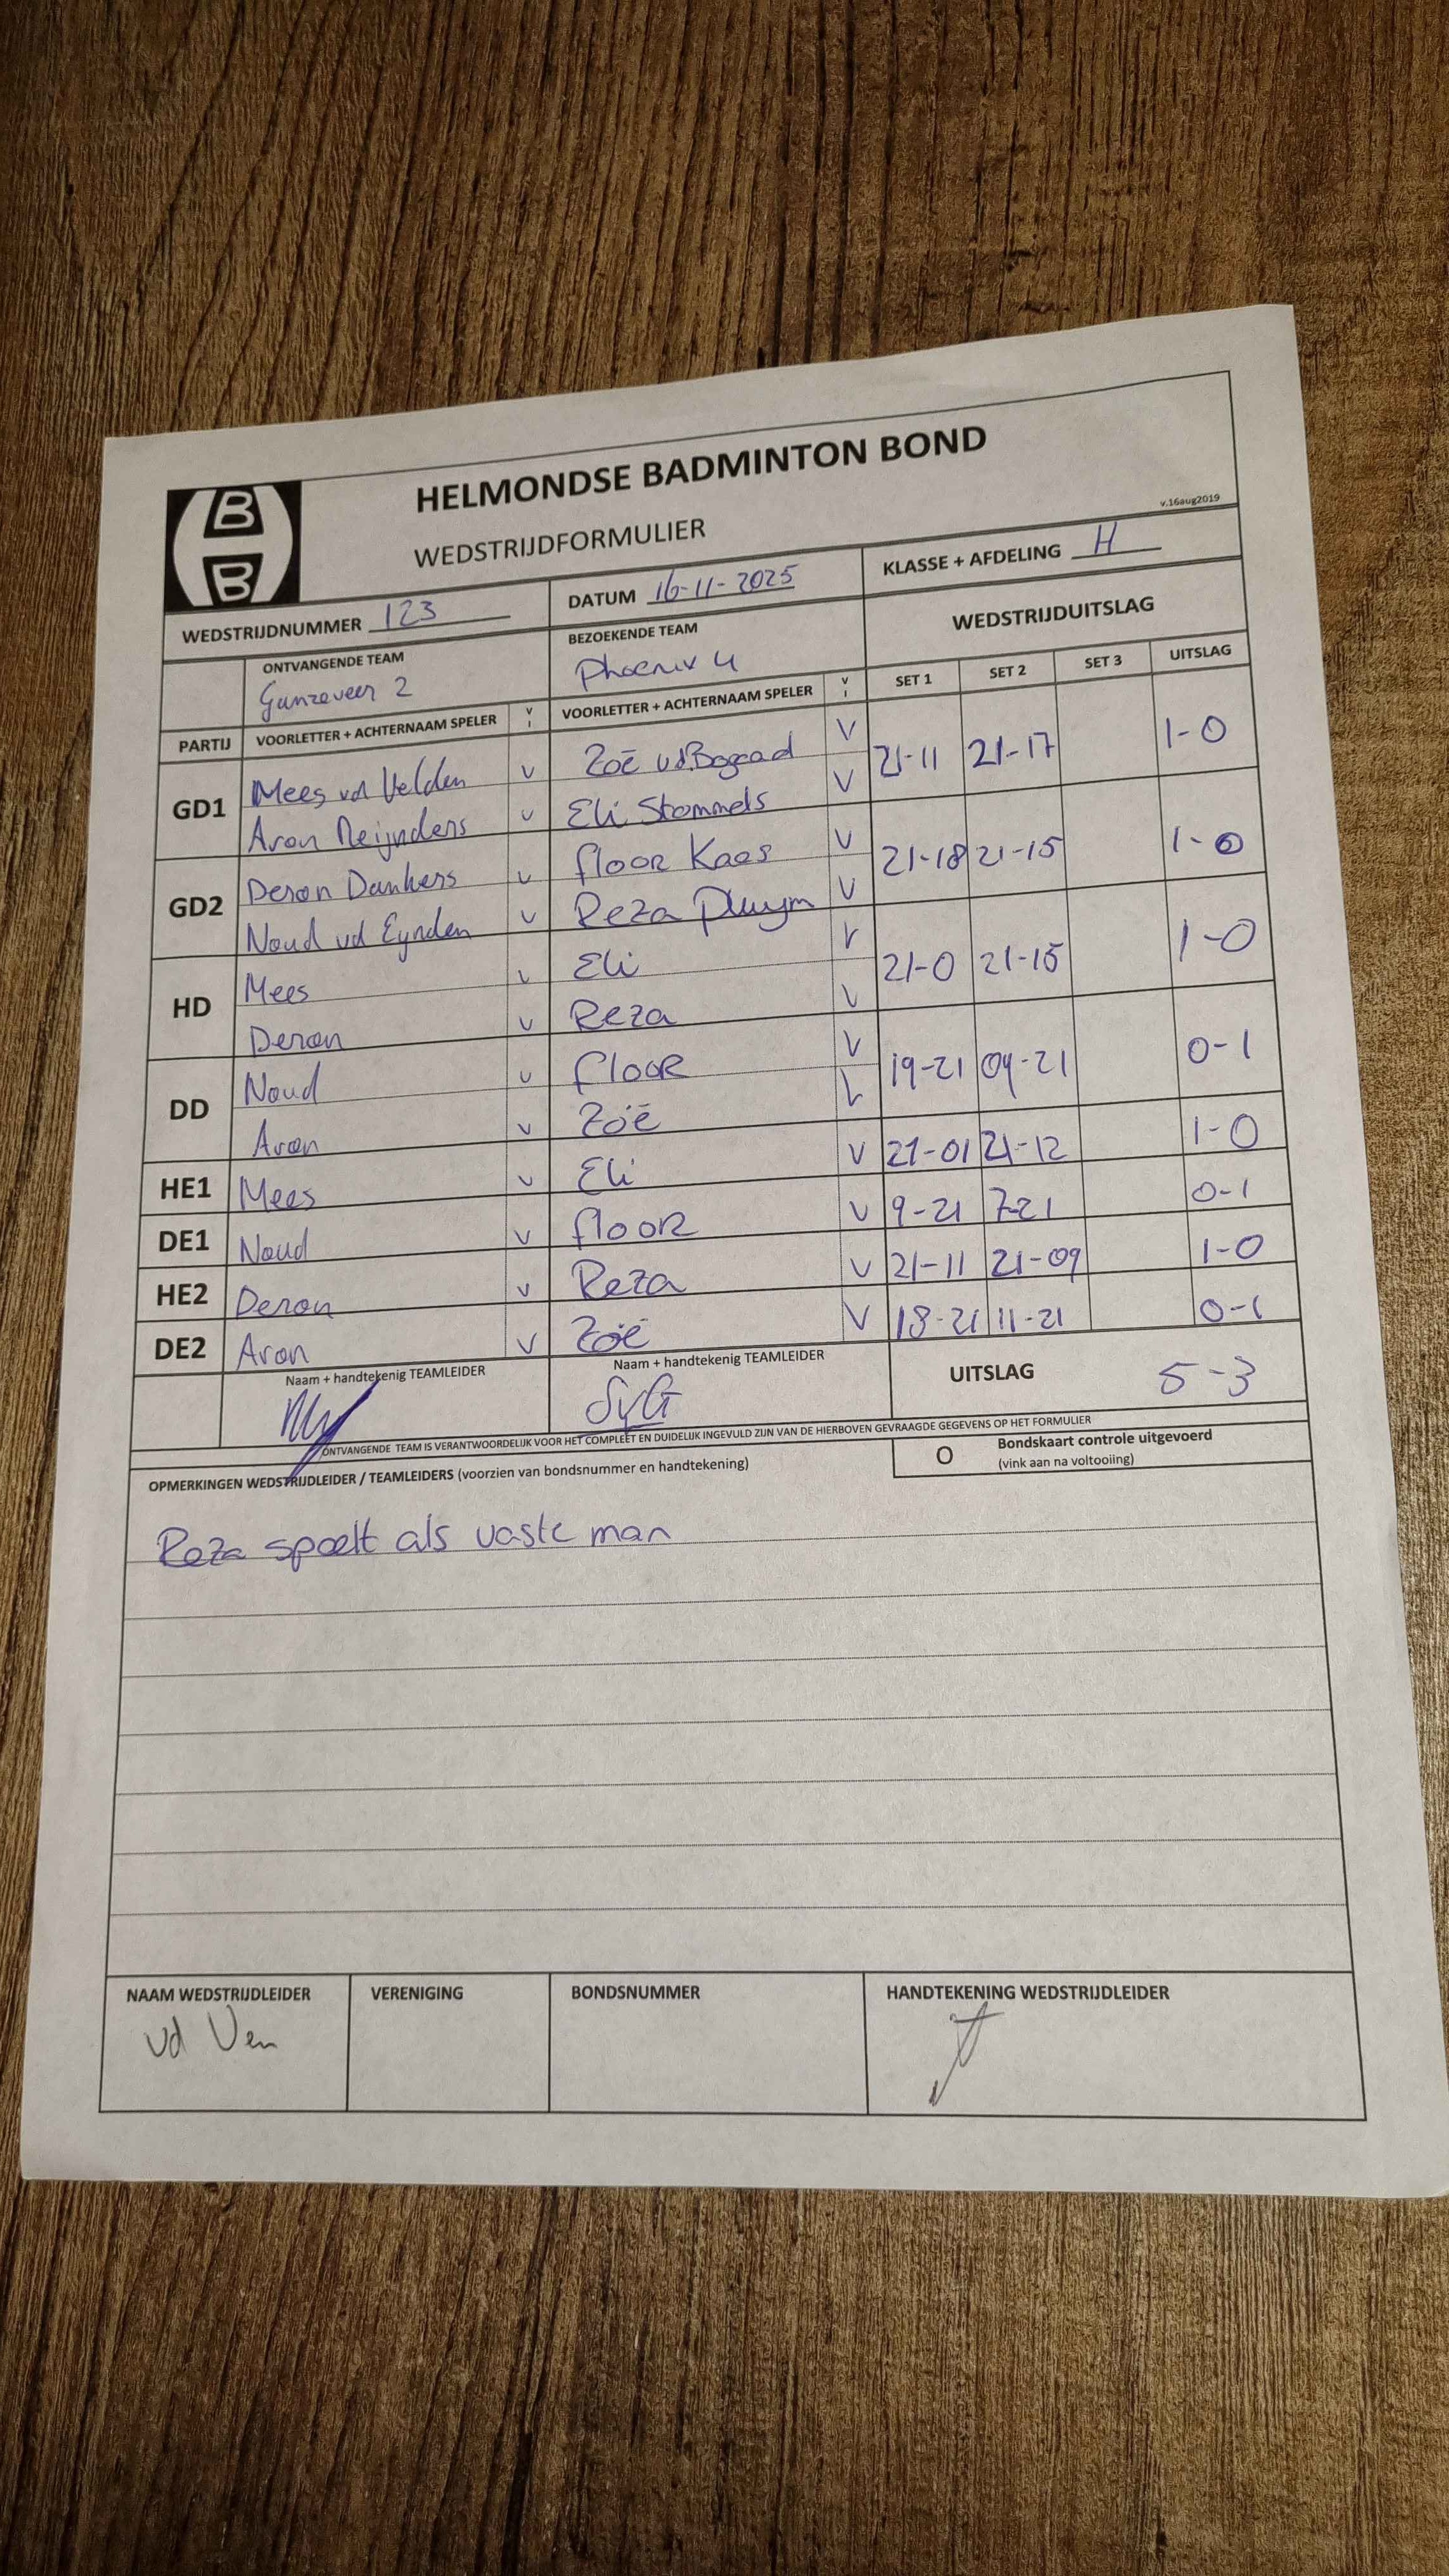 HELMONDSE BADMINTON BOND
WEDSTRIJDFORMULIER
v.16aug2019
WEDSTRIJDNUMMER 123 DATUM 16-11-2025 KLASSE + AFDELING H
ONTVANGENDE TEAM BEZOEKENDE TEAM WEDSTRIJDUITSLAG
Ganzeveer 2 Phoenix 4
PARTIJ VOORLETTER + ACHTERNAAM SPELER V I VOORLETTER + ACHTERNAAM SPELER V I SET 1 SET 2 SET 3 UITSLAG
GD1 Mees vd Velden v Zoë vd.Bogaad V 21-11 21-17 1-0
Aron Reijnders v Eli Stommels V
GD2 Deron Dankers v floor Kaas V 21-18 21-15 1-0
Noud vd Eynden v Reza Pluym V
HD Mees v Eli V 21-0 21-15 1-0
Deron v Reza V
DD Noud v floor V 19-21 09-21 0-1
Aron v Zoë V
HE1 Mees v Eli V 21-01 21-12 1-0
DE1 Noud v floor V 9-21 7-21 0-1
HE2 Deron v Reza V 21-11 21-09 1-0
DE2 Aron v Zoë V 18-21 11-21 0-1
Naam + handtekenig TEAMLEIDER Naam + handtekenig TEAMLEIDER UITSLAG 5-3
ONTVANGENDE TEAM IS VERANTWOORDELIJK VOOR HET COMPLEET EN DUIDELIJK INGEVULD ZIJN VAN DE HIERBOVEN GEVRAAGDE GEGEVENS OP HET FORMULIER
OPMERKINGEN WEDSTRIJDLEIDER / TEAMLEIDERS (voorzien van bondsnummer en handtekening) O Bondskaart controle uitgevoerd
(vink aan na voltooiing)
Reza speelt als vaste man
NAAM WEDSTRIJDLEIDER VERENIGING BONDSNUMMER HANDTEKENING WEDSTRIJDLEIDER
vd Ven